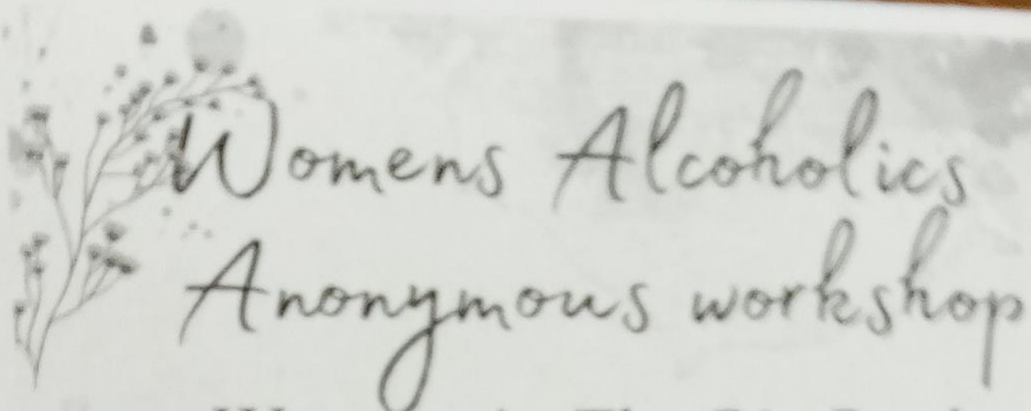 Womens Alcoholics
Anonymous workshop